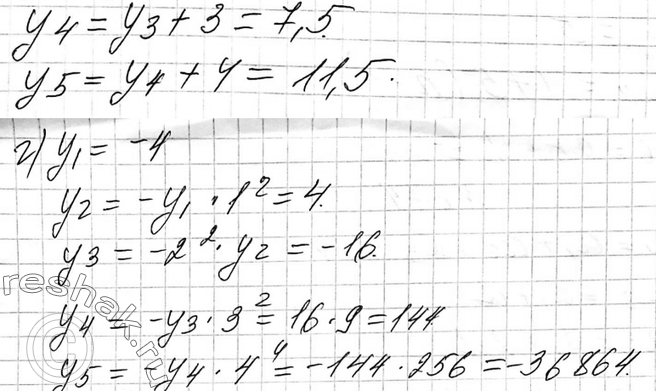 y4 = y3 + 3 = 7,5.
y5 = y4 + 4 = 11,5.
г) y1 = -4
y2 = -y1 · 1² = 4.
y3 = -2² · y2 = -16.
y4 = -y3 · 3² = 16 · 9 = 144.
y5 = -y4 · 4⁴ = -144 · 256 = -36864.
reshak.ru